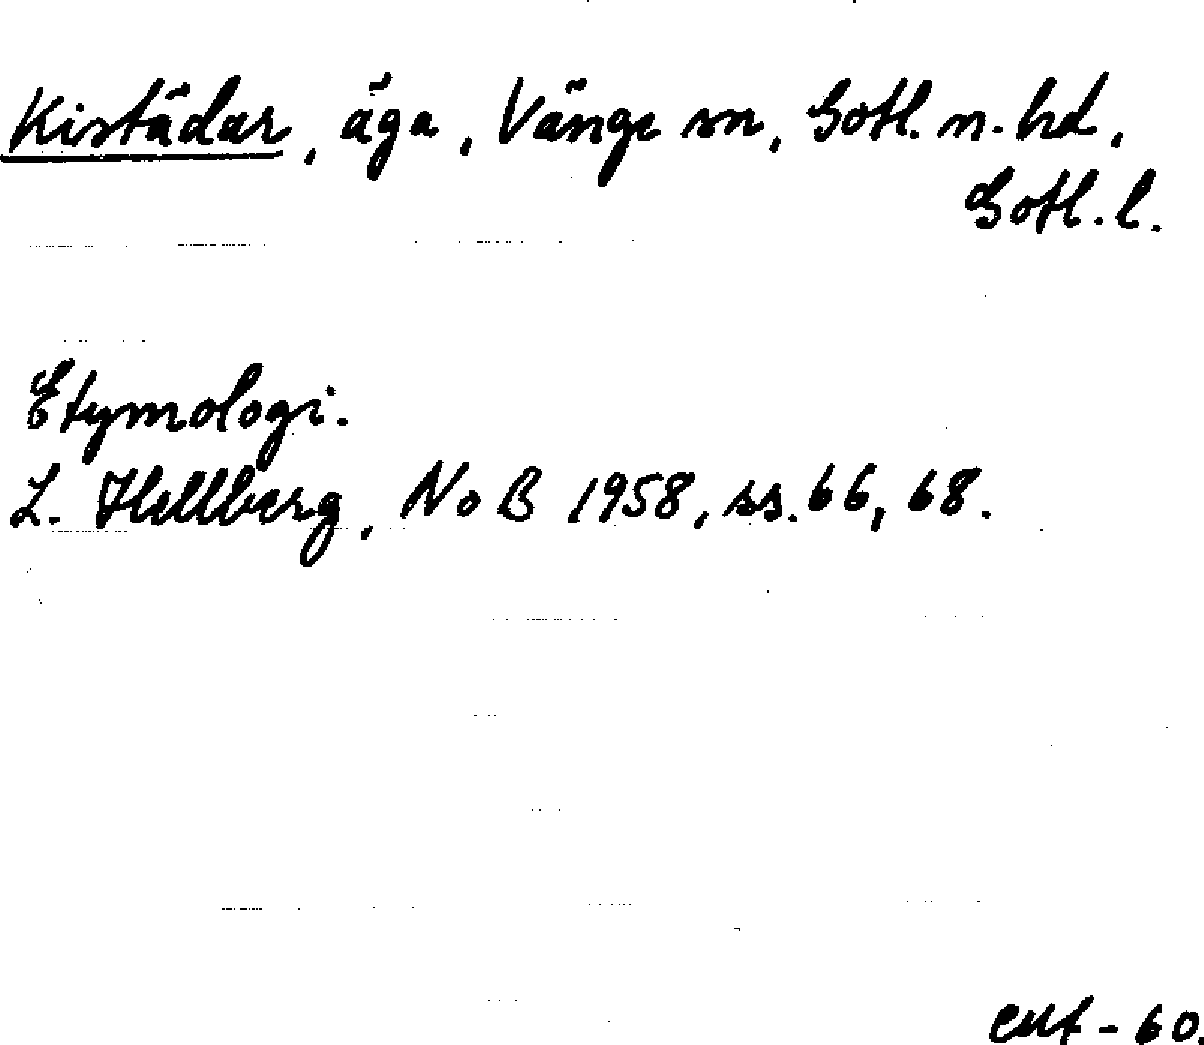 Kistädar, äga, Vänge sn, Gotl. n. hd,
Gotl. l.
Etymologi.
L. Hellberg, NoB 1958, ss. 66, 68.
-60.